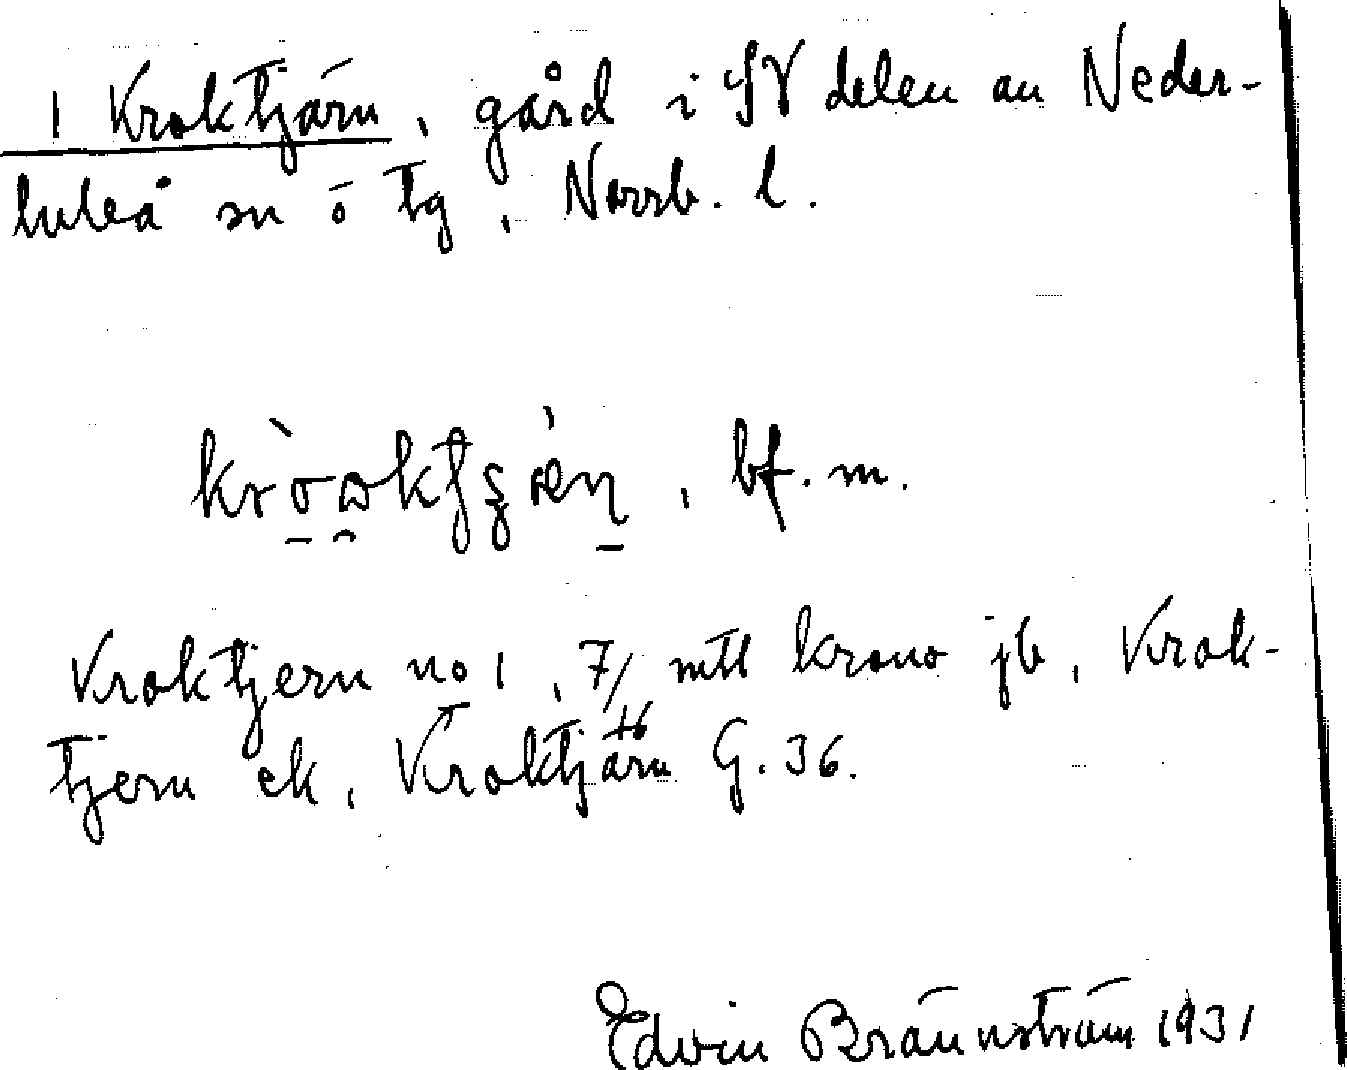 1 Kroktjärn, gård i SV delen av Neder-
luleå sn ö tg, Norrb. l.
kròɷktʂæ̀ɳ, bf. m.
Kroktjern no 1, 7/16 mtl krono jb, Krok-
tjern ek, Kroktjärn G. 36.
Edvin Brännström 1931